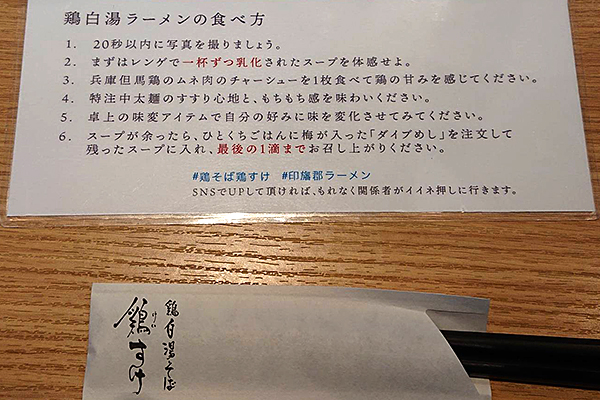 鶏白湯ラーメンの食べ方
1. 20秒以内に写真を撮りましょう。
2. まずはレンゲで一杯ずつ乳化されたスープを体感せよ。
3. 兵庫但馬鶏のムネ肉のチャーシューを1枚食べて鶏の甘みを感じてください。
4. 特注中太麺のすすり心地と、もちもち感を味わいください。
5. 卓上の味変アイテムで自分の好みに味を変化させてみてください。
6. スープが余ったら、ひとくちごはんに梅が入った「ダイブめし」を注文して
残ったスープに入れ、最後の1滴までお召し上がりください。
#鶏そば鶏すけ #印旛郡ラーメン
SNSでUPして頂ければ、もれなく関係者がイイネ押しに行きます。
鶏白湯そば
鶏すけ
けい